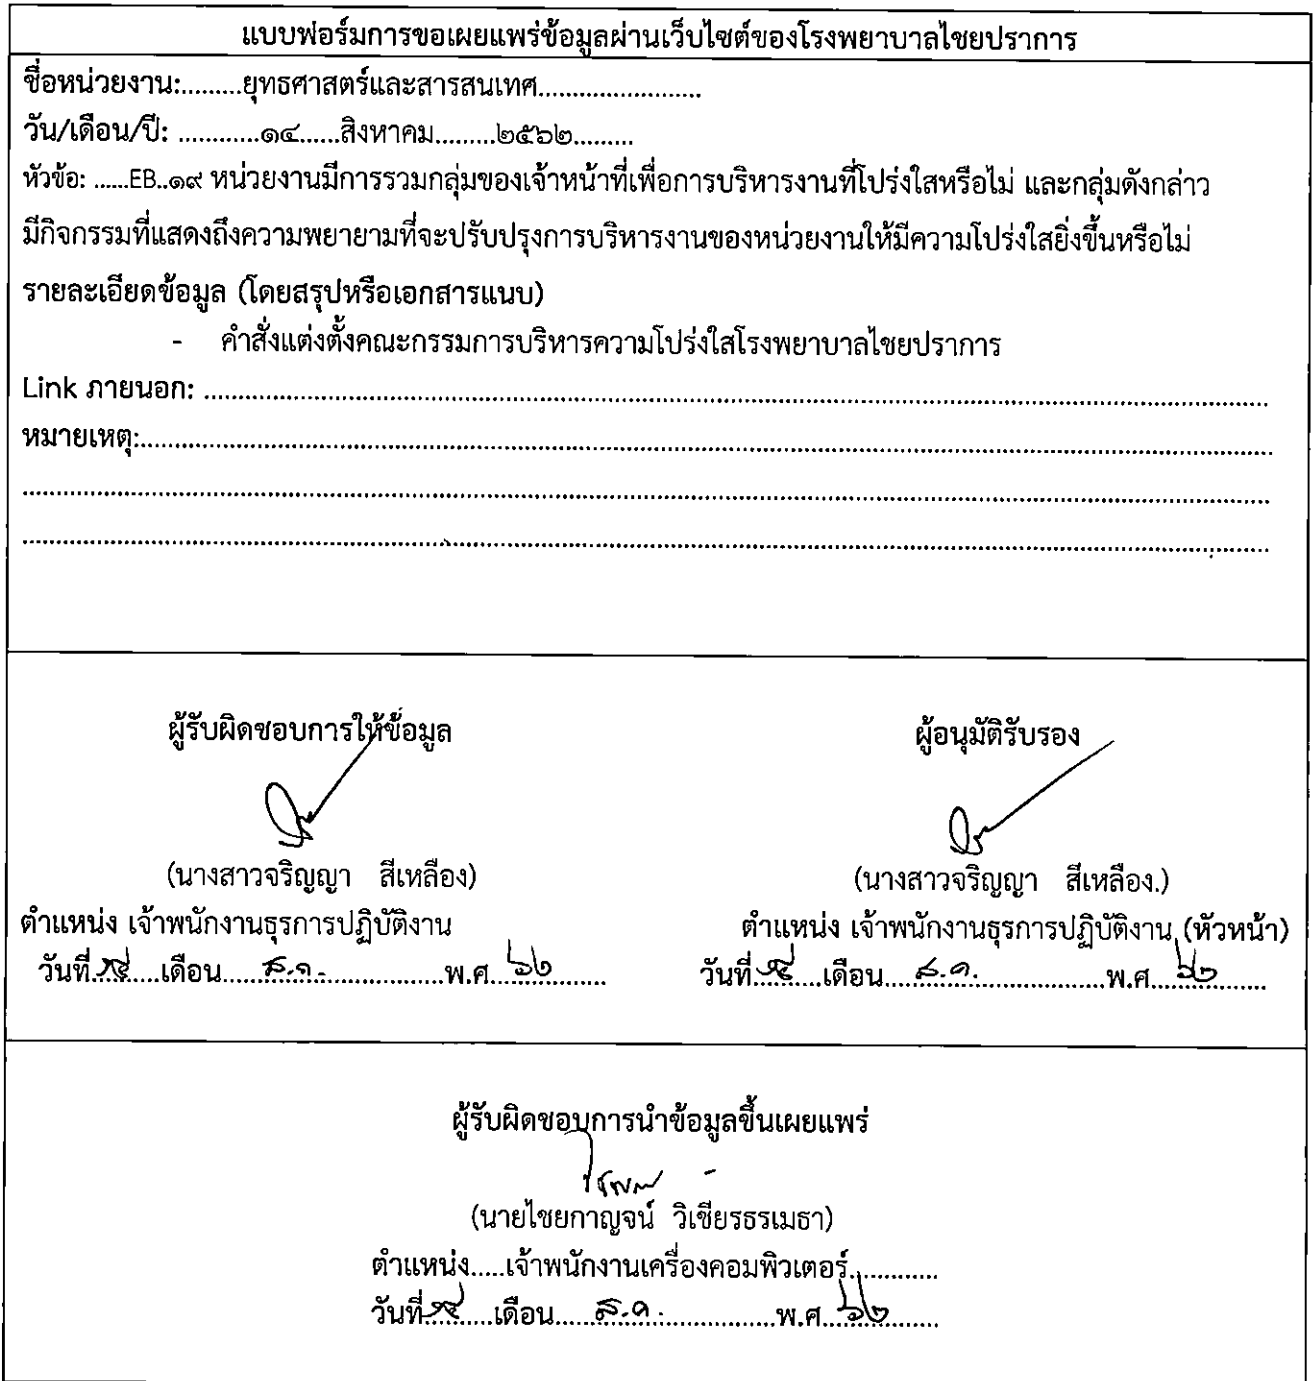 แบบฟอร์มการขอเผยแพร่ข้อมูลผ่านเว็บไซต์ของโรงพยาบาลไชยปราการ
ชื่อหน่วยงาน:.........ยุทธศาสตร์และสารสนเทศ........................
วัน/เดือน/ปี: ............๑๔......สิงหาคม.........๒๕๖๒.........
หัวข้อ: ......EB..๑๙ หน่วยงานมีการรวมกลุ่มของเจ้าหน้าที่เพื่อการบริหารงานที่โปร่งใสหรือไม่ และกลุ่มดังกล่าว
มีกิจกรรมที่แสดงถึงความพยายามที่จะปรับปรุงการบริหารงานของหน่วยงานให้มีความโปร่งใสยิ่งขึ้นหรือไม่
รายละเอียดข้อมูล (โดยสรุปหรือเอกสารแนบ)
- คำสั่งแต่งตั้งคณะกรรมการบริหารความโปร่งใสโรงพยาบาลไชยปราการ
Link ภายนอก: ........................................................................
หมายเหตุ:........................................................................
ผู้รับผิดชอบการให้ข้อมูล ผู้อนุมัติรับรอง
(นางสาวจริญญา สีเหลือง) (นางสาวจริญญา สีเหลือง.)
ตำแหน่ง เจ้าพนักงานธุรการปฏิบัติงาน ตำแหน่ง เจ้าพนักงานธุรการปฏิบัติงาน (หัวหน้า)
วันที่.๑๔.....เดือน.....ส.ค..................พ.ศ..๖๒............ วันที่.๑๔.....เดือน.....ส.ค..................พ.ศ..๖๒............
ผู้รับผิดชอบการนำข้อมูลขึ้นเผยแพร่
(นายไชยกาญจน์ วิเชียรธรเมธา)
ตำแหน่ง.....เจ้าพนักงานเครื่องคอมพิวเตอร์.............
วันที่.๑๔.....เดือน.....ส.ค..................พ.ศ..๖๒............